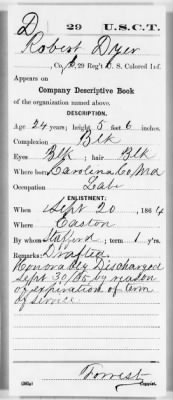 D 29 U.S.C.T.
Robert Dyer
, Co. , 29 Reg't U. S. Colored Inf.
Appears on
Company Descriptive Book
of the organization named above.
DESCRIPTION.
Age 24 years; height 5 feet 6 inches.
Complexion Blk
Eyes Blk ; hair Blk
Where born Carolina Co, Md
Occupation Labr
ENLISTMENT.
When Sept 20 , 186 4
Where Easton
By whom Stafford ; term 1 y'rs.
Remarks: Drafted
Honorably Discharged
Sept 30/65 by reason
of expiration of term
of service
Forrest
Copyist.